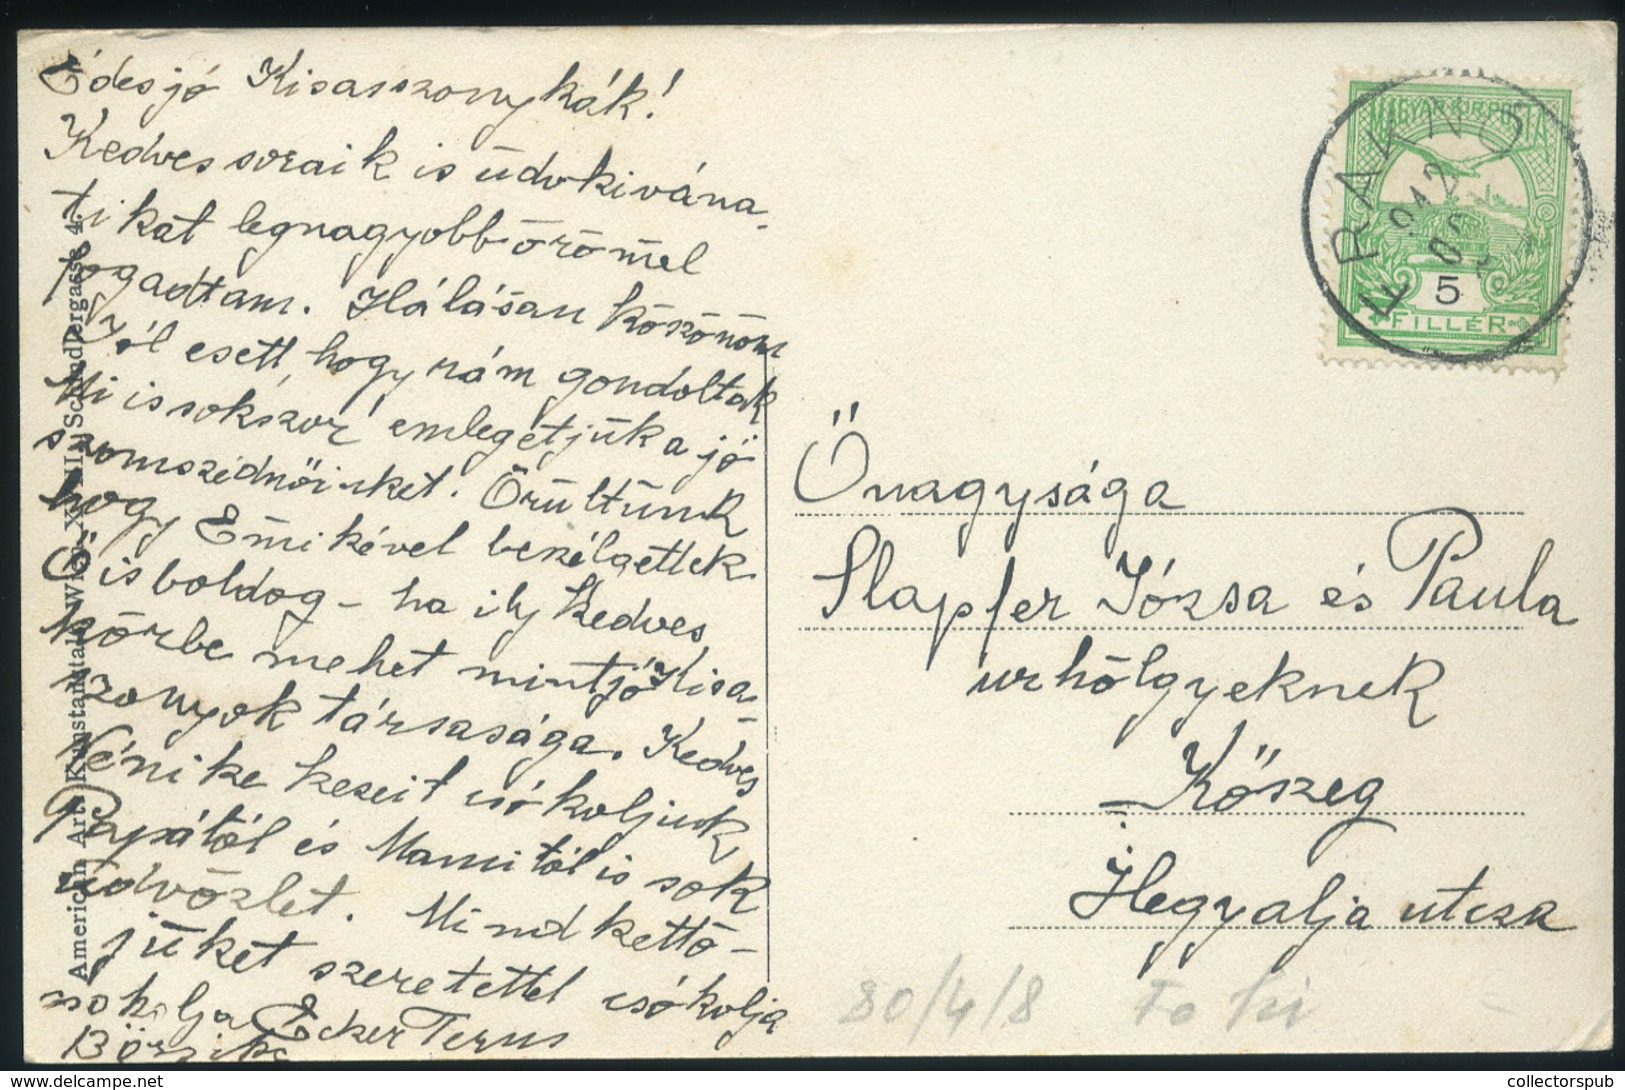 Édes jó Kisasszonykák!
Kedves soraik is üdvkivána-
tikat legnagyobb örömmel
fogadtam. Hálásan köszönöm
Jól esett, hogy rám gondoltak
Mi is sokszor emlegetjük a jó
szomszédnőinket. Örültünk
hogy Emikével beszélgettek
Ő is boldog – ha ily kedves
körbe mehet mint jó Kisa-
szonyok társasága. Kedves
Nénike kezeit csókoljuk
Papától és Mamitól is sok
üdvözlet. Mind kettő-
jüket szeretettel csókolja
Ecker Terus
Börzsike
American Art Kunstanstalt Wien XVIII, Schindlergasse 4.
MAGYAR KIR. POSTA
FRAKNÓ
912
5
FILLÉR
Őnagysága
Slapfer Józsa és Paula
úrhölgyeknek
Kőszeg
Hegyalja utcza
80/4/8
collectorspub